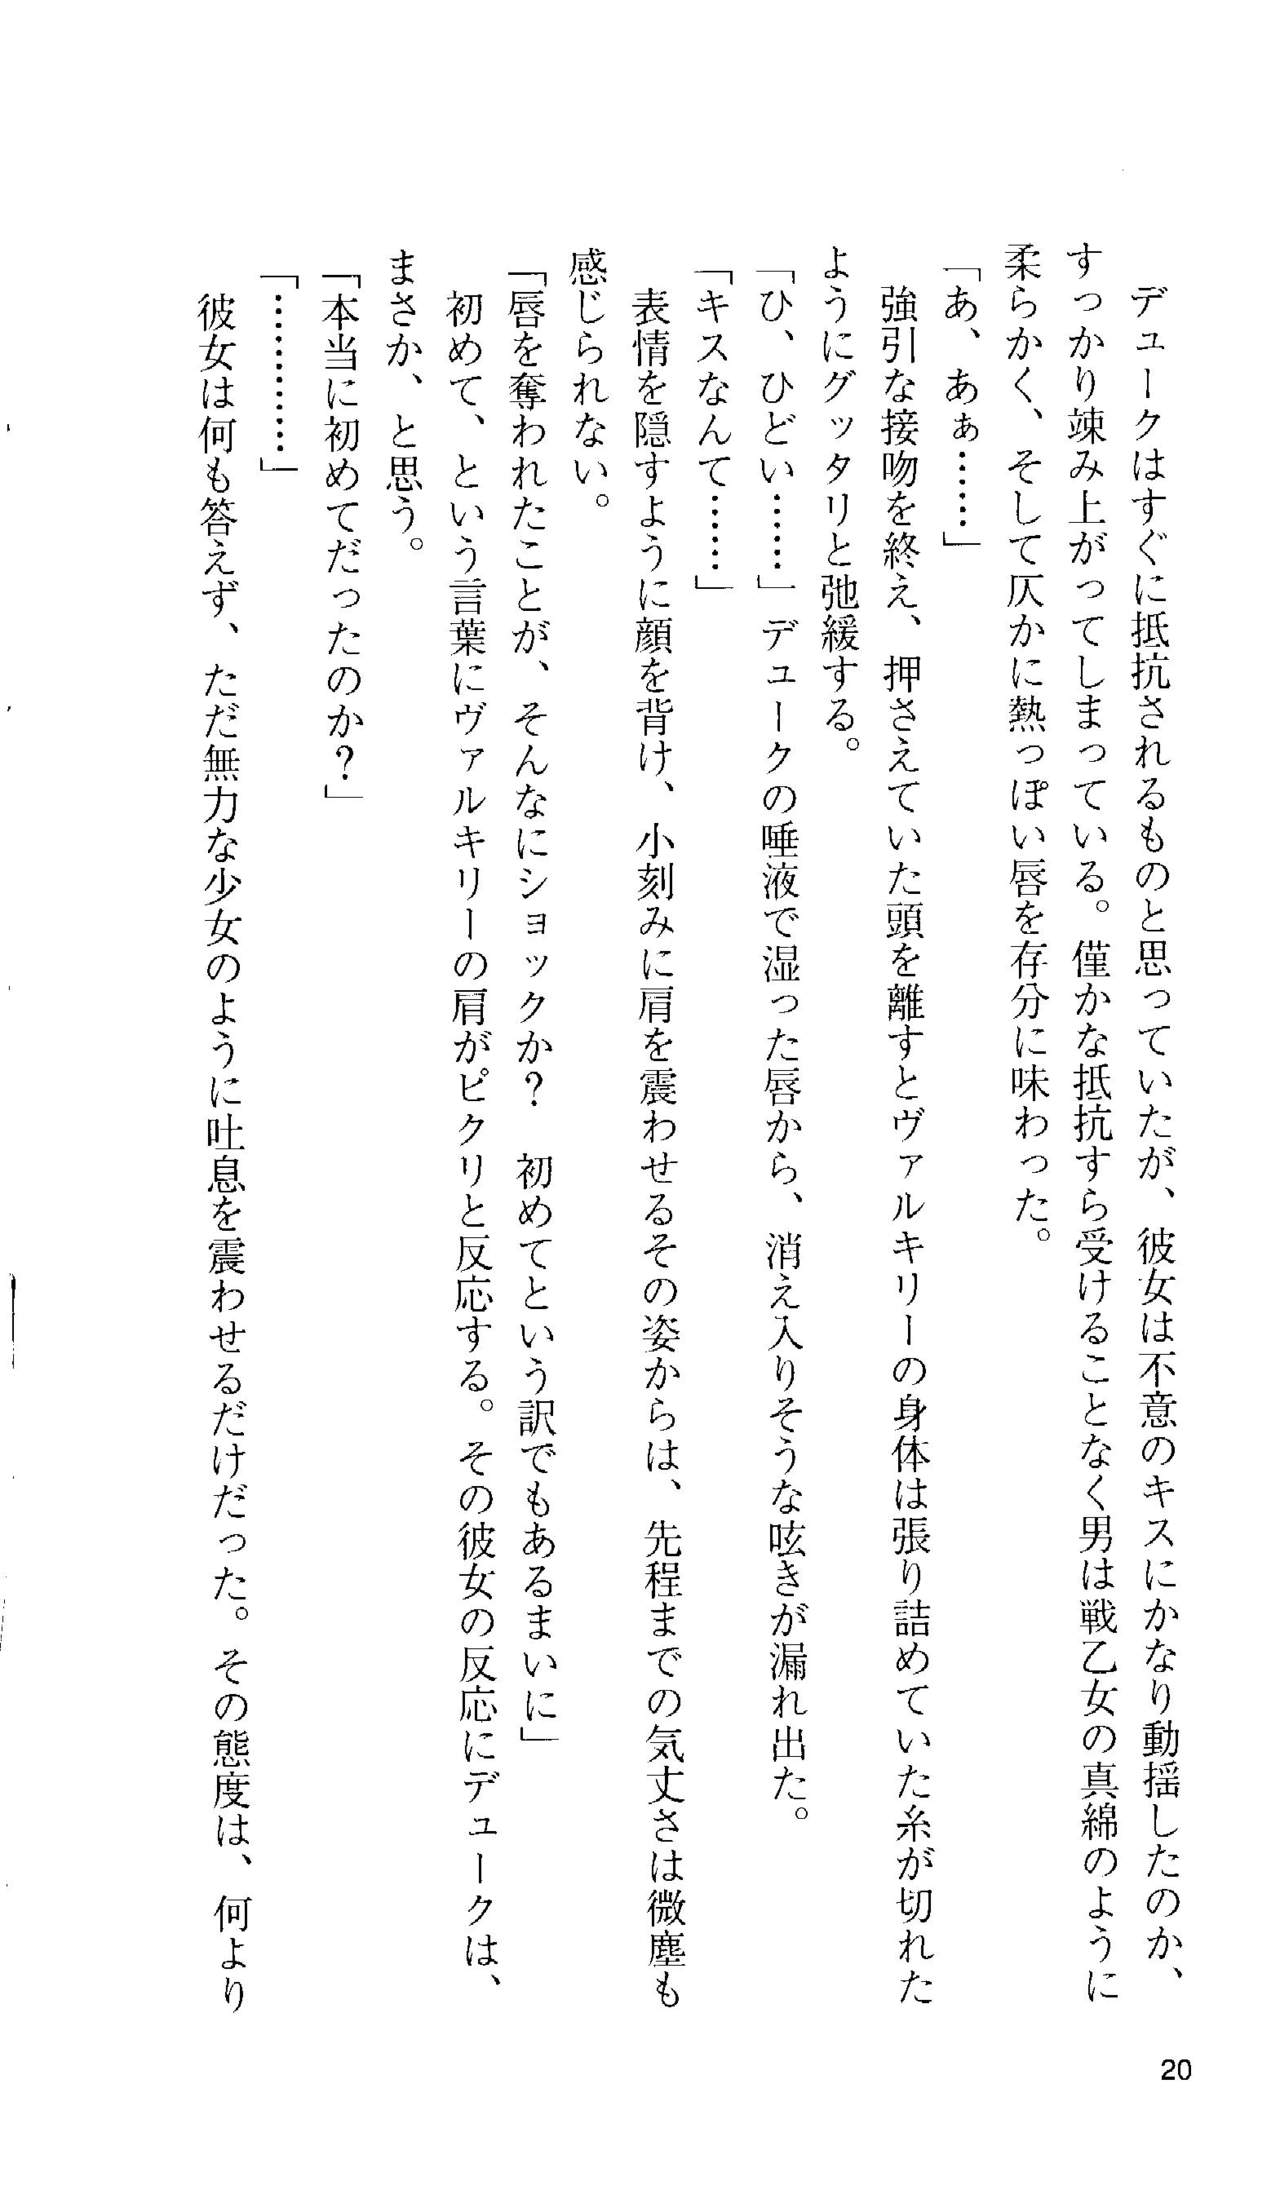 デュークはすぐに抵抗されるものと思っていたが、彼女は不意のキスにかなり動揺したのか、
すっかり竦み上がってしまっている。僅かな抵抗すら受けることなく男は戦乙女の真綿のように
柔らかく、そして仄かに熱っぽい唇を存分に味わった。
「あ、あぁ……」
強引な接吻を終え、押さえていた頭を離すとヴァルキリーの身体は張り詰めていた糸が切れた
ようにグッタリと弛緩する。
「ひ、ひどい……」デュークの唾液で湿った唇から、消え入りそうな呟きが漏れ出た。
「キスなんて……」
表情を隠すように顔を背け、小刻みに肩を震わせるその姿からは、先程までの気丈さは微塵も
感じられない。
「唇を奪われたことが、そんなにショックか？　初めてという訳でもあるまいに」
初めて、という言葉にヴァルキリーの肩がピクリと反応する。その彼女の反応にデュークは、
まさか、と思う。
「本当に初めてだったのか？」
「…………」
彼女は何も答えず、ただ無力な少女のように吐息を震わせるだけだった。その態度は、何より
20